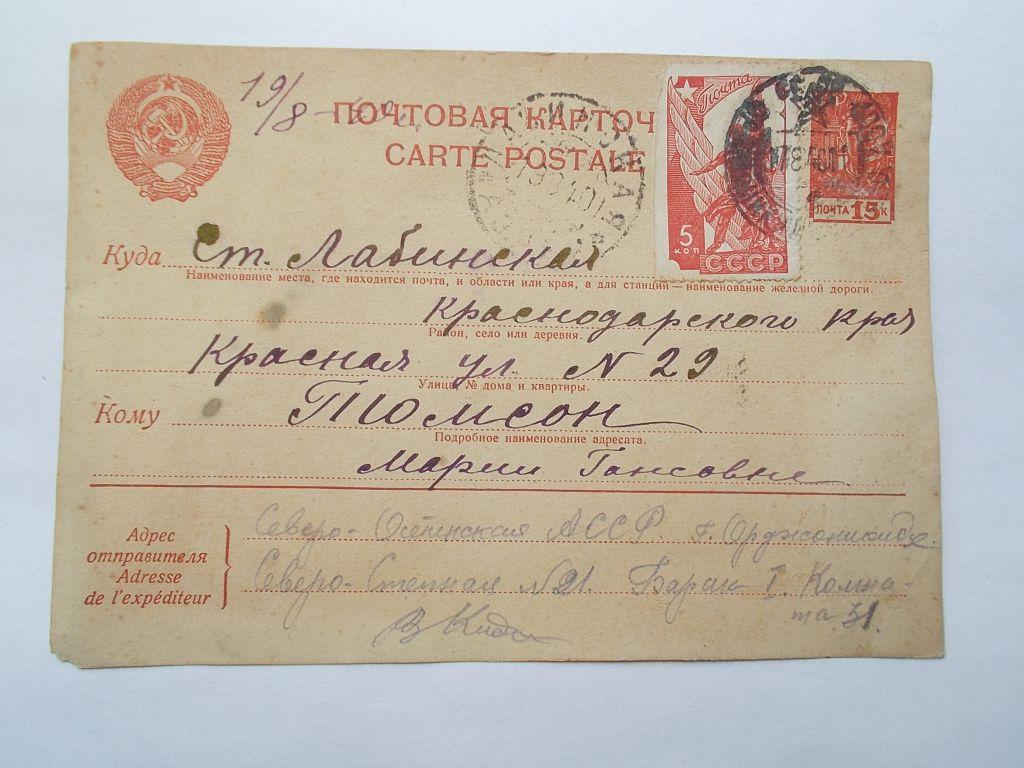 19/8
ПОЧТОВАЯ КАРТОЧ
CARTE POSTALE
Почта
5
КОП
СССР
ПОЧТА 15 К
Куда Ст. Лабинская
Наименование места, где находится почта, и области или края, а для станций — наименование железной дороги.
Краснодарского края
Район, село или деревня.
Красная ул. N 29
Улица, № дома и квартиры.
Кому Томсон
Подробное наименование адресата.
Марии Гансовне
Адрес
отправителя
Adresse
de l'expéditeur
Северо-Осетинская АССР. г. Орджоникидзе.
Северо-Степная N21. Барак I. Комна-
та 31.